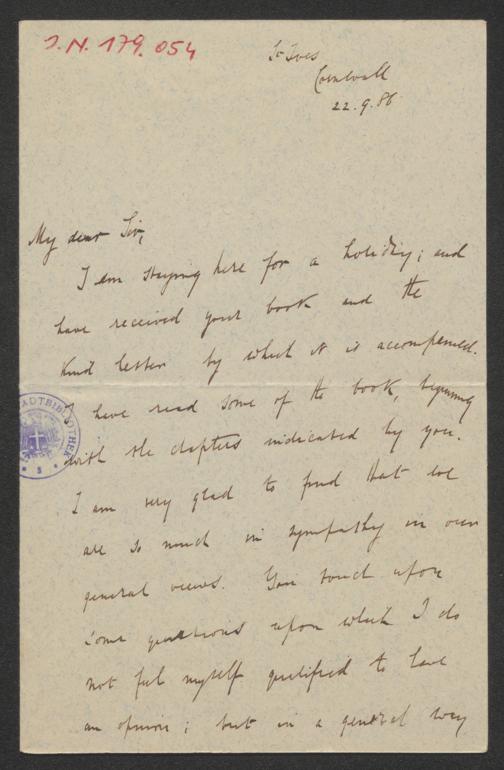 J.N. 179.054
St Ives
Cornwall
22.9.86.
My dear Sir,
I am staying here for a holiday; and
have received your book and the
kind letter by which it is accompanied.
I have read some of the book, beginning
with the chapters indicated by you.
I am very glad to find that we
are so much in sympathy in our
general views. You touch upon
some questions upon which I do
not feel myself qualified to have
an opinion; but in a general way
STADTBIBLIOTHEK